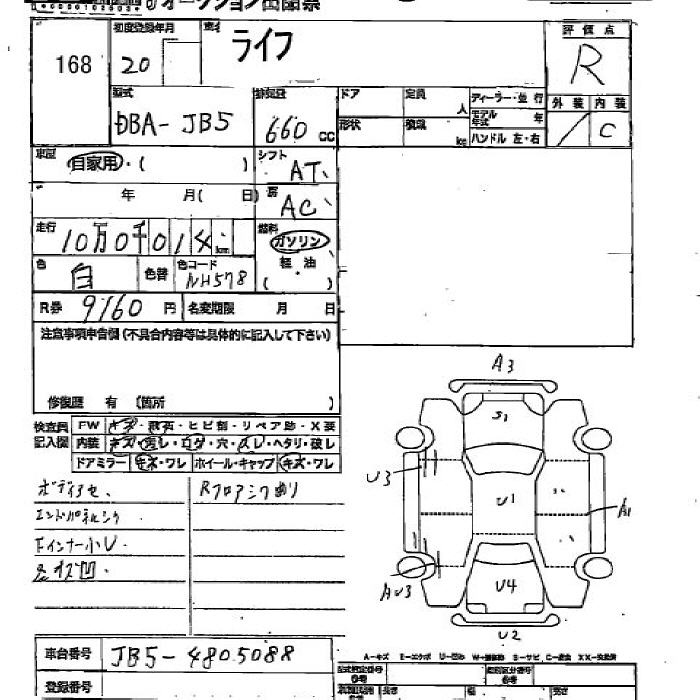 オークション出品票
168
初度登録年月
20
車名
ライフ
評価点
R
型式
DBA-JB5
排気量
660 cc
ドア
定員
人
ディーラー・並行
モデル年式 年
形状
積載
kg
ハンドル 左・右
外装
内装
/
C
車歴
自家用・( )
シフト
AT
年 月( 日)
冷房
AC
走行
10万0千014 km
燃料
ガソリン
軽油
( )
色
白
色替
色コード
NH578
R券
9160 円
名変期限 月 日
注意事項申告欄(不具合内容等は具体的に記入して下さい)
修復歴 有 (箇所 )
検査員記入欄
FW
キズ・飛石・ヒビ割・リペア跡・X要
内装
キズ・汚レ・コゲ・穴・スレ・ヘタリ・破レ
ドアミラー
キズ・ワレ
ホイール・キャップ
キズ・ワレ
ボディアセ
Rフロアシワあり
エンドパネルシワ
FインナーハU
各キズ凹
A3
S1
U3
U1
A1
AU3
U4
U2
車台番号
JB5-4805088
登録番号